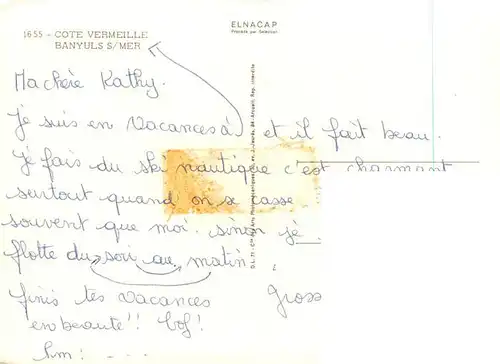 1655 - COTE VERMEILLE
BANYULS S/MER
ELNACAP
Procédé par Sélection
Ma chère Kathy.
Je suis en vacances à et il fait beau.
Je fais du ski nautique c'est charmant
surtout quand on se casse
souvent que moi. sinon je
flotte du soir au matin
finis tes vacances gross
en beauté!! bof!
hm: - - -